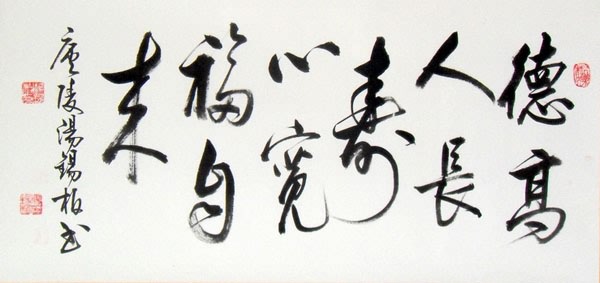 德高
人長
壽
心寬
福自
来
庐陵湯錫板書